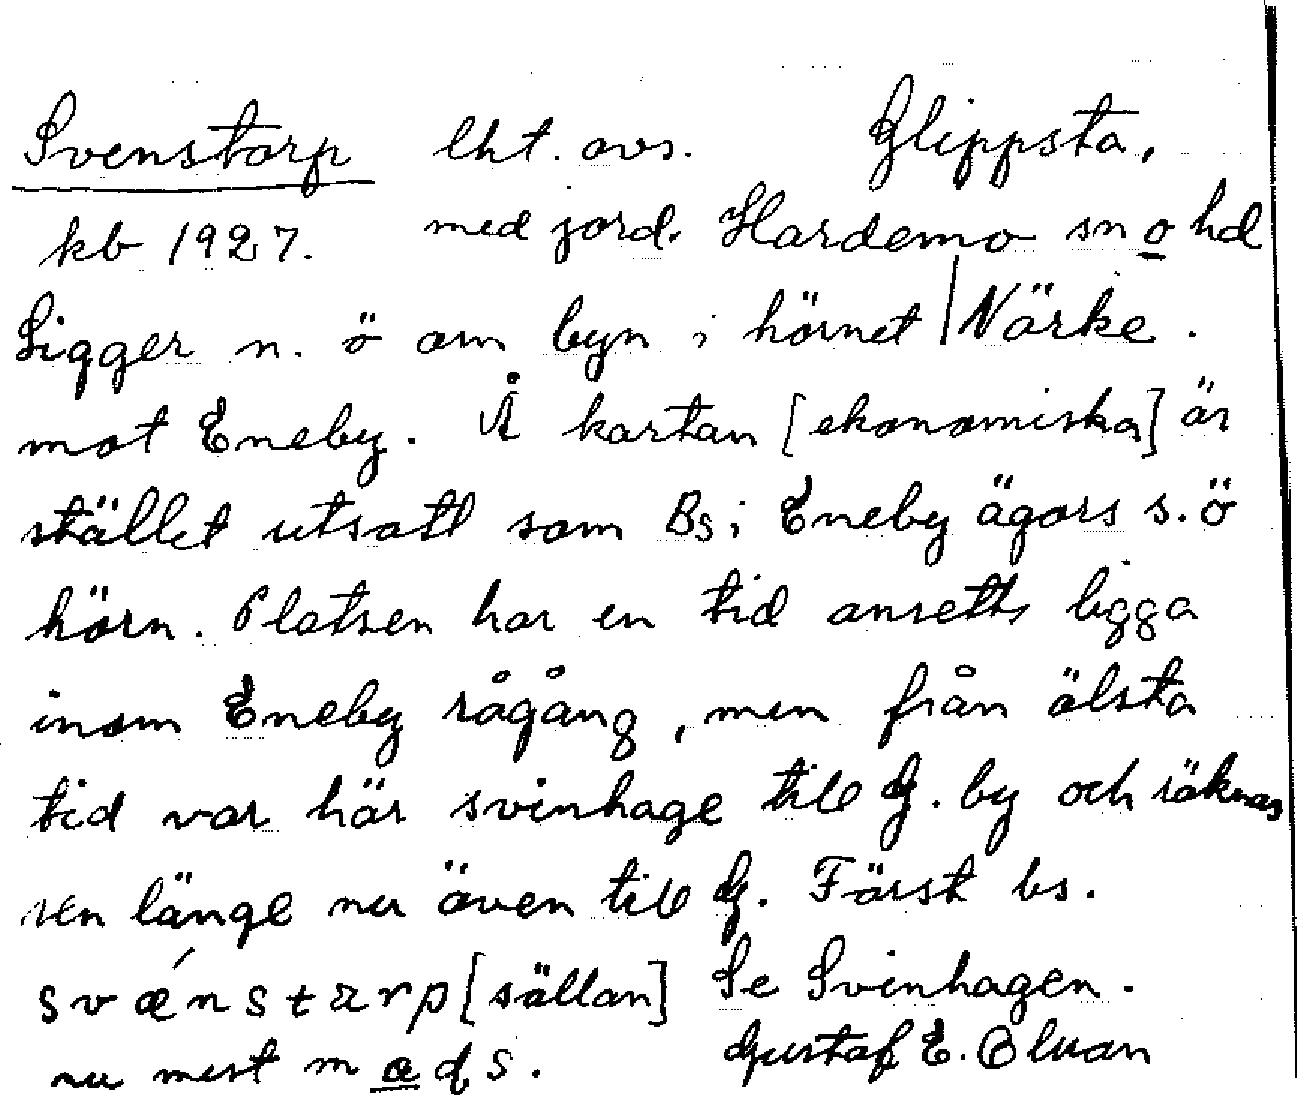 Svenstorp lht. avs. Glippsta,
kb 1927. med jord. Hardemo sn o hd
Ligger n. ö om byn i hörnet | Närke.
mot Eneby. Å kartan [ekonomiska] är
stället utsatt som Bs i Eneby ägors s. ö
hörn. Platsen har en tid ansetts ligga
inom Eneby rågång, men från älsta
tid var här svinhage till G. by och räknas
sen länge nu även till G. Först bs.
svǽnstarp [sällan] Se Svinhagen.
nu mest Gustaf E. Bluan